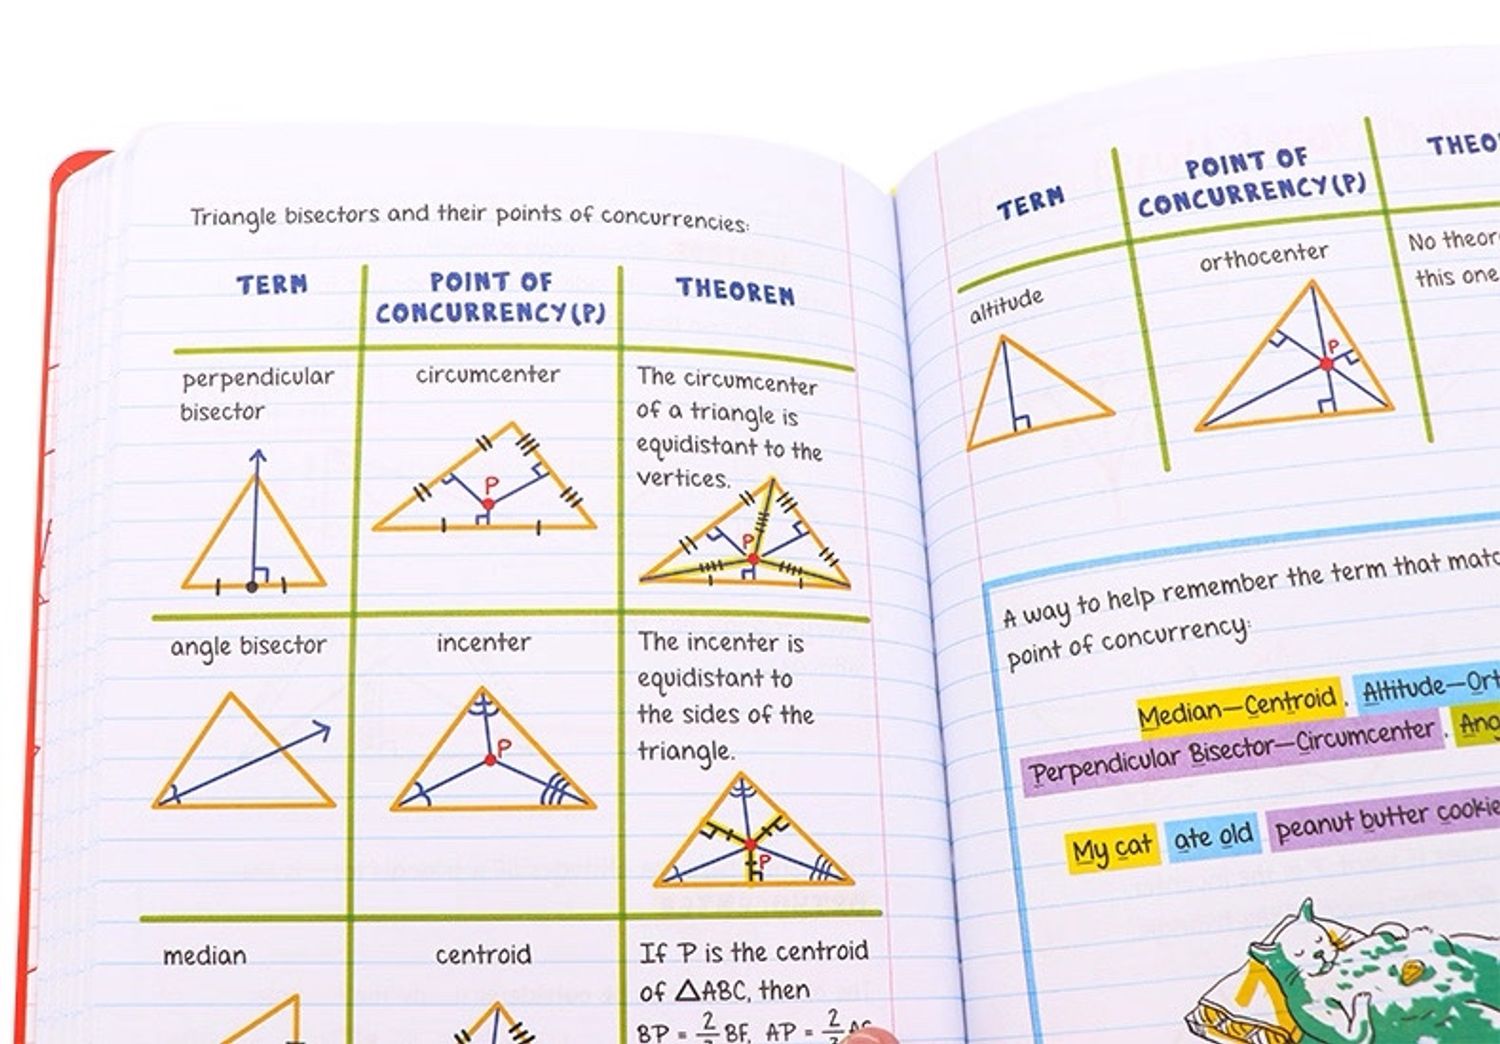 Triangle bisectors and their points of concurrencies:
TERM
POINT OF
CONCURRENCY(P)
THEOREM
perpendicular
bisector
circumcenter
P
The circumcenter
of a triangle is
equidistant to the
vertices.
P
angle bisector
incenter
P
The incenter is
equidistant to
the sides of the
triangle.
P
median
centroid
If P is the centroid
of △ABC, then
BP = 2 BF, AP = 2
TERM
POINT OF
CONCURRENCY(P)
altitude
orthocenter
P
No
this one
A way to help remember the term that
point of concurrency:
Median—Centroid. Altitude—
Perpendicular Bisector—Circumcenter.
My cat ate old peanut butter